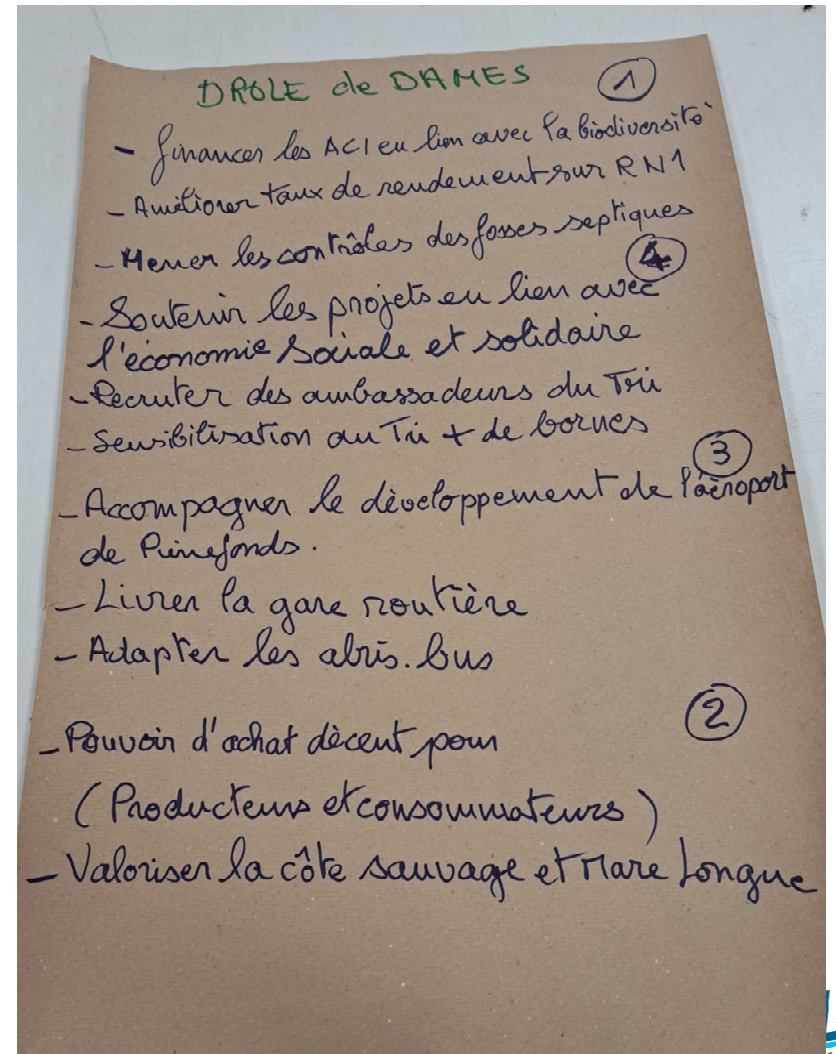 DROLE de DAMES
1
- financer les ACI en lien avec la biodiversité
- Améliorer taux de rendement sur RN1
- Mener les contrôles des fosses septiques
4
- Soutenir les projets en lien avec
l'économie sociale et solidaire
- Recruter des ambassadeurs du Tri
- Sensibilisation au Tri + de bornes
3
- Accompagner le dèveloppement de l'aèroport
de Pierrefonds.
- Livrer la gare routière
- Adapter les abris.bus
2
- Pouvoir d'achat dècent pour
(Producteurs et consommateurs)
- Valoriser la côte sauvage et Mare Longue